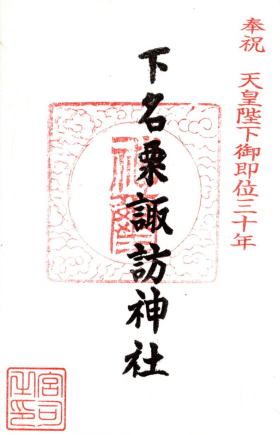 奉祝 天皇陛下御即位三十年
下名栗諏訪神社
宮司之印